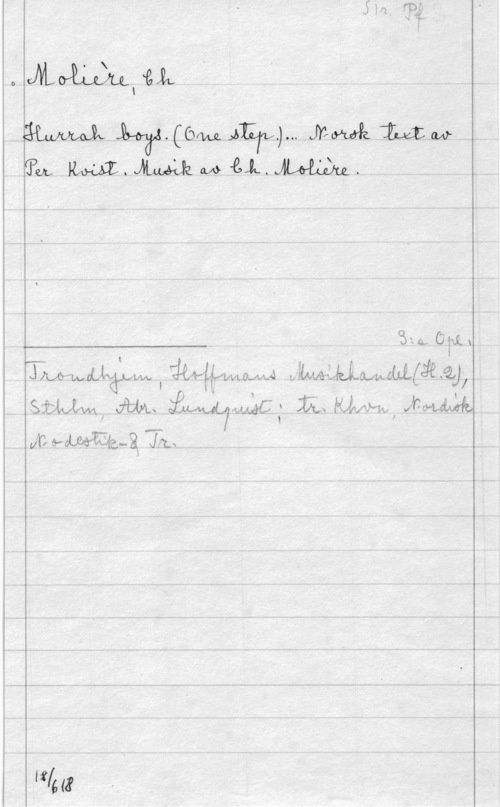 Molière, Ch
Hurrah boys. (One step.)... Norsk text av
Per Kvist. Musik av Ch. Molière.
3:e Opl.
Trondhjem, Hoffmans Musikhandel (H.2),
Sthlm, Abr. Lundquist; tr. Khvn, Nordisk
Nodestik- & Tr.
18/6 18